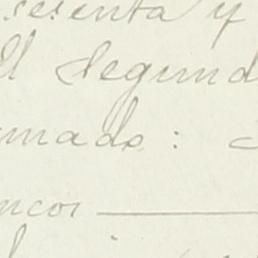 sesenta y
El Segund
mado:
ncos